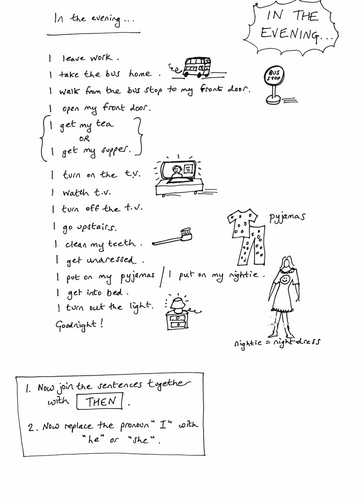 In the evening...
IN THE
EVENING...
I leave work.
I take the bus home.
BUS
STOP
I walk from the bus stop to my front door.
I open my front door.
I get my tea
OR
I get my supper.
I turn on the t.v.
I watch t.v.
I turn off the t.v.
I go upstairs.
pyjamas
I clean my teeth.
I get undressed.
I put on my pyjamas / I put on my nightie.
I get into bed.
I turn out the light.
Goodnight!
nightie = nightdress
1. Now join the sentences together
with THEN.
2. Now replace the pronoun "I" with
"he" or "she".